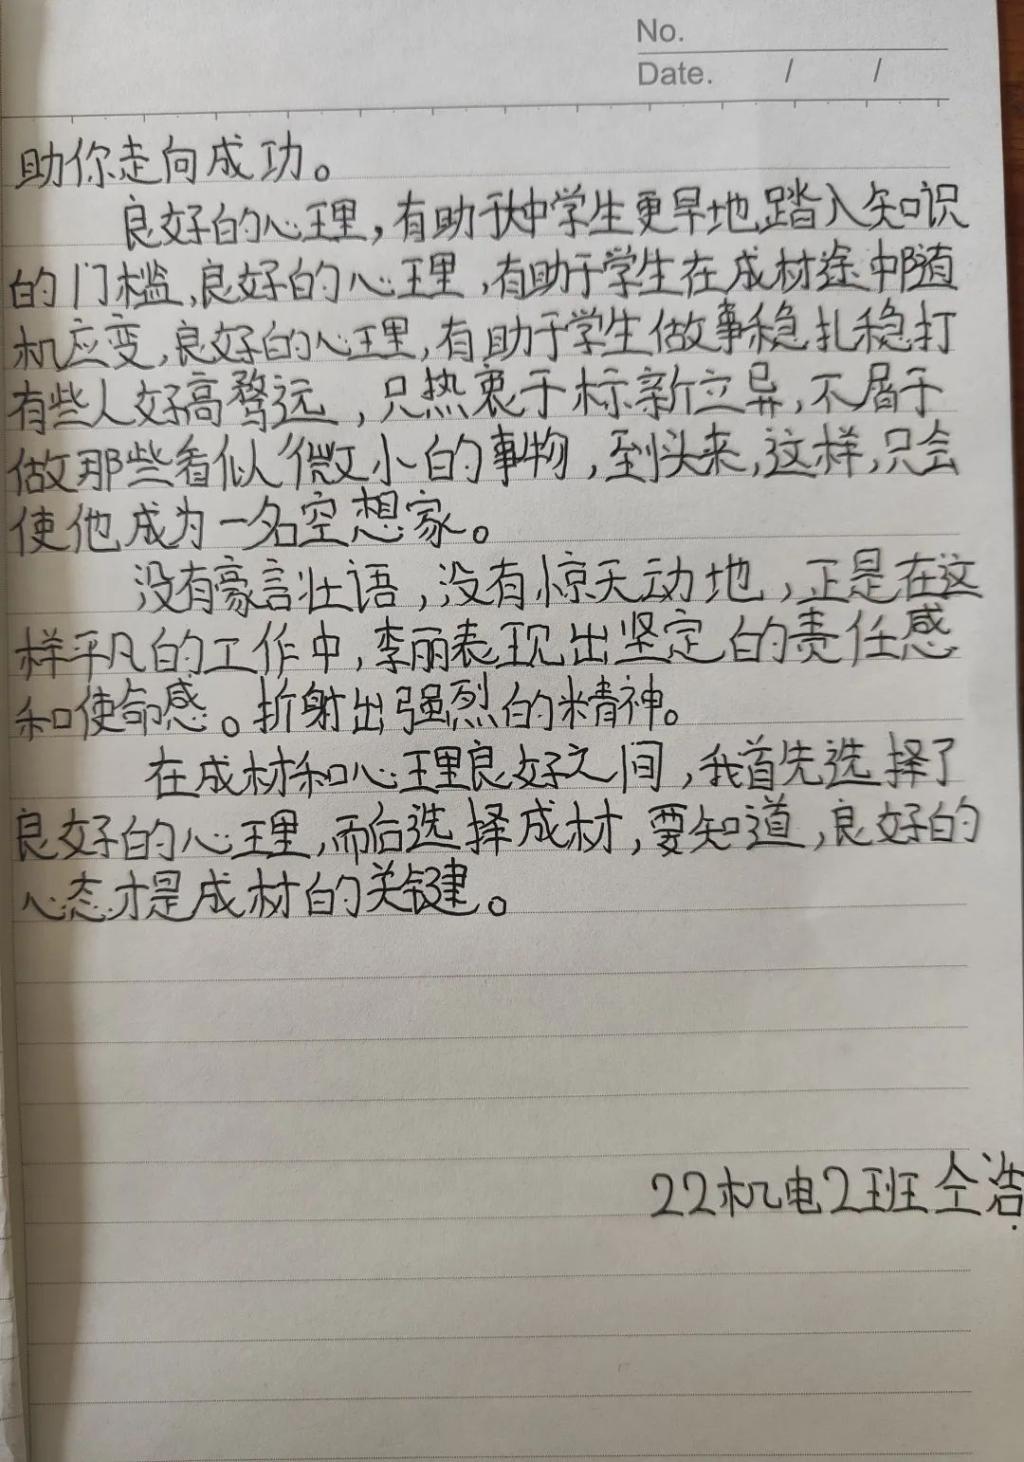 No.
Date. / /
助你走向成功。
良好的心理,有助于中学生更早地踏入知识
的门槛,良好的心理,有助于学生在成材途中随
机应变,良好的心理,有助于学生做事稳扎稳打
有些人好高骛远,只热衷于标新立异,不屑于
做那些看似微小的事物,到头来,这样,只会
使他成为一名空想家。
没有豪言壮语,没有惊天动地,正是在这
样平凡的工作中,李丽表现出坚定的责任感
和使命感。折射出强烈的精神。
在成材和心理良好之间,我首先选择了
良好的心理,而后选择成材,要知道,良好的
心态才是成材的关键。
22机电2班仝浩